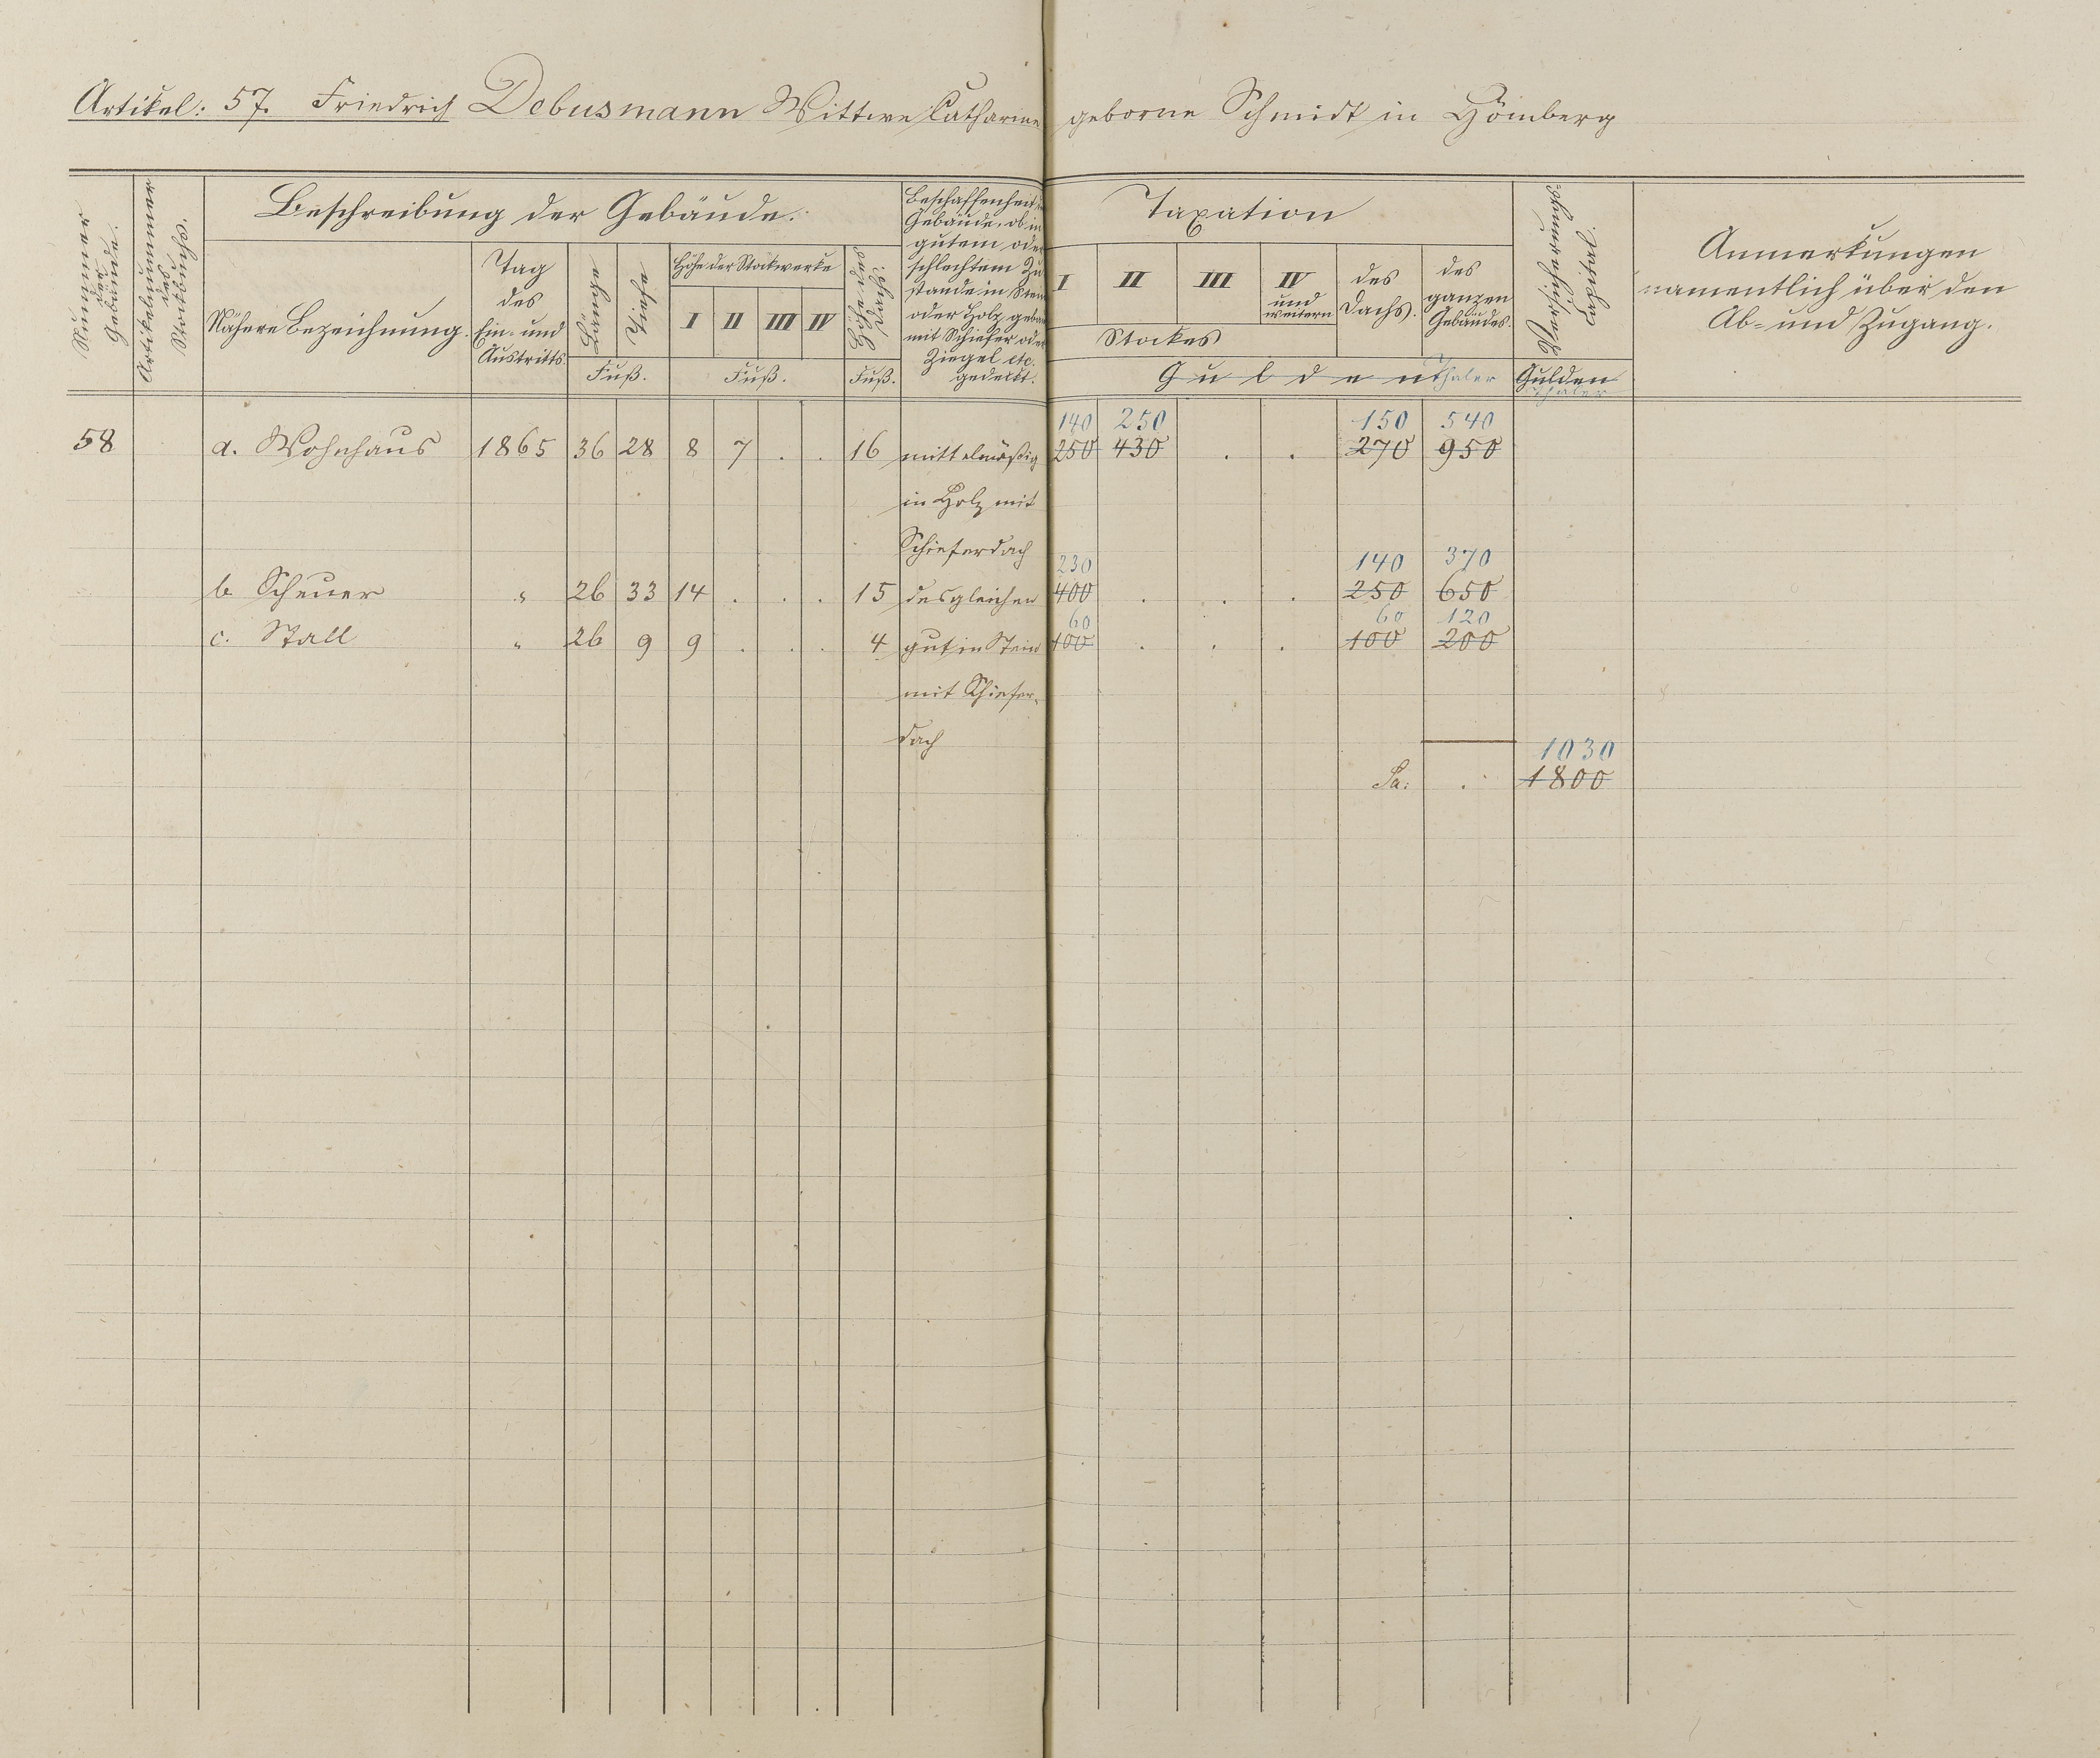 Artikel: 57. Friedrich Debusmann Wittwe Catharine geborne Schmidt in Hömberg
Nummer der Gebäude.
Artikelnummer des Stockbuchs.
Beschreibung der Gebäude.
Nähere Bezeichnung.
Tag des Ein- und Austritts.
Länge
Tiefe
Fuß.
Höhe der Stockwerke
I II III IV
Fuß.
Höhe des Dachs.
Fuß.
Beschaffenheit
Gebäude, ob in
gutem oder
schlechtem Zu
stande in Stein
oder Holz gebaut
mit Schiefer oder
Ziegel etc.
gedeckt.
Taxation
I II III IV und weitern
Stockes
des Dachs.
des ganzen Gebäudes.
Gulden Thaler
Versicherungs Capital.
Gulden
Thaler
Anmerkungen
namentlich über den
Ab- und Zugang.
140 250 150 540
58 a. Wohnhaus 1865 36 28 8 7 . . 16 mittelmäßig 250 430 . . 270 950
in Holz mit
Schieferdach
230 140 370
b. Scheuer " 26 33 14 . . . 15 desgleichen 400 . . . 250 650
60 60 120
c. Stall " 26 9 9 . . . 4 gut in Stein 100 . . . 100 200
mit Schiefer-
dach
1030
Sa: . 1800